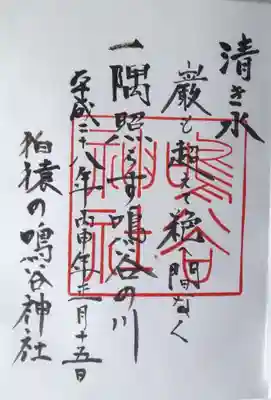 清き水
巌も超えて絶へ間なく
一隅照らす鳴谷の川
平成二十八年丙申年正月十五日
狛猿の鳴谷神社
鳴谷神社